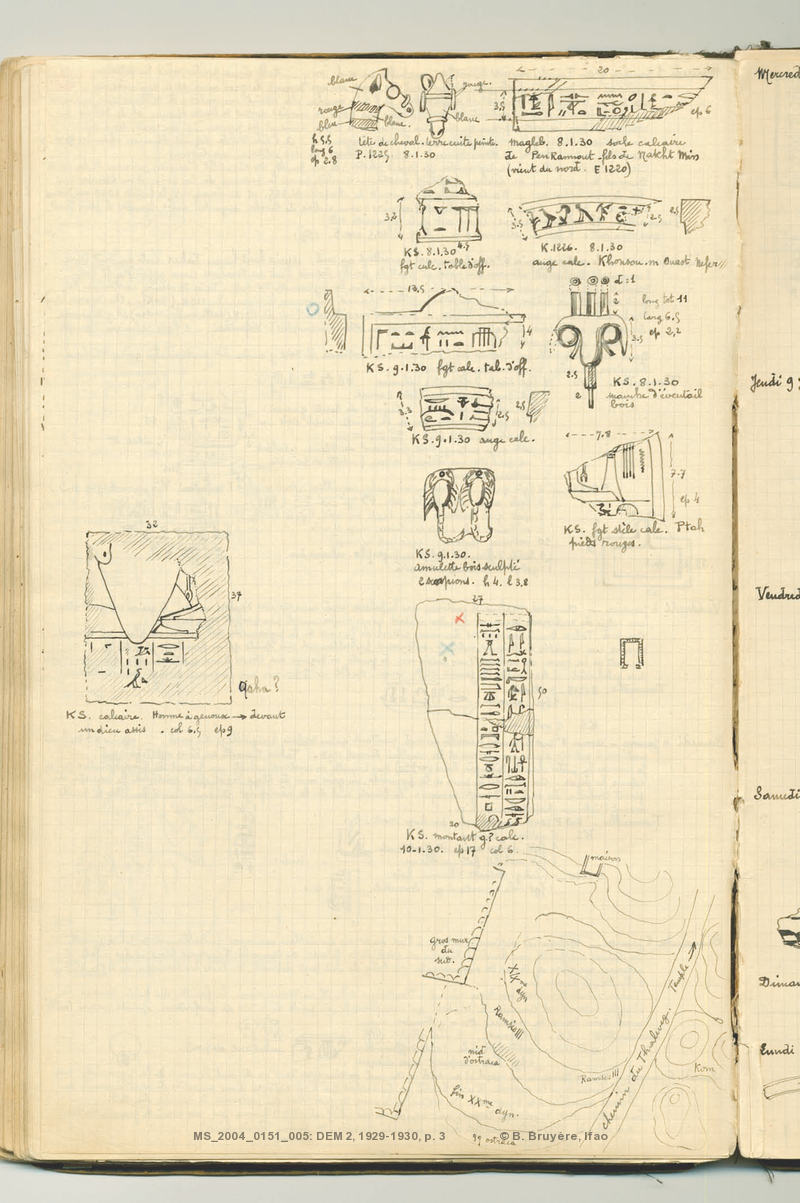 blanc
rouge
bleu
blanc.
h 5,5
long 6
ep 2.8
rouge.
blanc
tête de cheval. terre cuite peinte.
P. 1225 8.1.30
20
3,5
ep. 6
magasb. 8.1.30 socle calcaire
de Pen Ramout fils de Nakht Min
(vient du nord. E 1220)
3,2
4.5
KS. 8.1.30
fgt calc. table d'off.
3.5
2.5
2,5
K. 1226. 8.1.30
auge calc. Khonsou.m Ouast Nefer
13,5
4
KS. 9.1.30 fgt calc. tab. d'off.
d:1
2
long tot 11
larg 6.5
ep 2,2
3.5
2.5
2
KS. 8.1.30
manche d'éventail
bois
3.3
2.5
2,5
KS. 9.1.30 auge calc.
7.8
7.7
ep 4
KS. fgt stèle calc. Ptah
pieds rouges.
KS. 9.1.30.
amulette bois sculpté
2 scorpions. h 4. l 3,8
32
37
Qaha ?
KS. calcaire. Homme à genoux → devant
un dieu assis . col 6.5 ep 9
27
50
30
KS. montant g.? calc.
10-1.30. ep 17 col 6.
maisons
gros mur
du
sub.
XXme dyn
Ramsès III
nid
d'ostraca
Ramsès III
fin XXme dyn.
chemin du Thalweg.
Temple
Kom
99 ostraca
Mercred
Jeudi 9
Vendred
Samedi
Diman
Lundi
MS_2004_0151_005: DEM 2, 1929-1930, p. 3 © B. Bruyère, Ifao